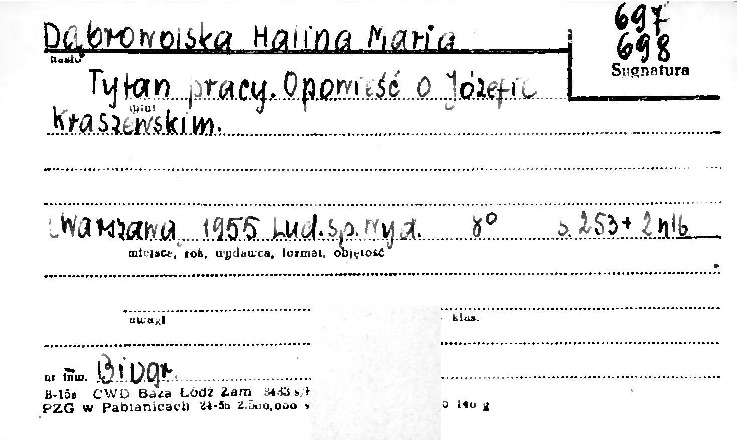 697
698
Sygnatura
Dąbrowolska Halina Maria
hasło
Tytan pracy. Opowieść o Józefie
tytuł
Kraszewskim.
Warszawa, 1955 Lud. Sp. Wyd. 8° s. 253 + 2 nlb
miejsce, rok, wydawca, format, objętość
uwagi klas.
nr inw. Biogr.
B-15a CWD Baza Łódź Zam
PZG w Pabianicach 24-5b 2.500,000 140 g